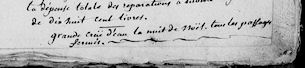 la dépense totale des reparations a
de dix huit cent livres.
grande crüe d'eau la nuit de Noël. tous les passages
fermés.